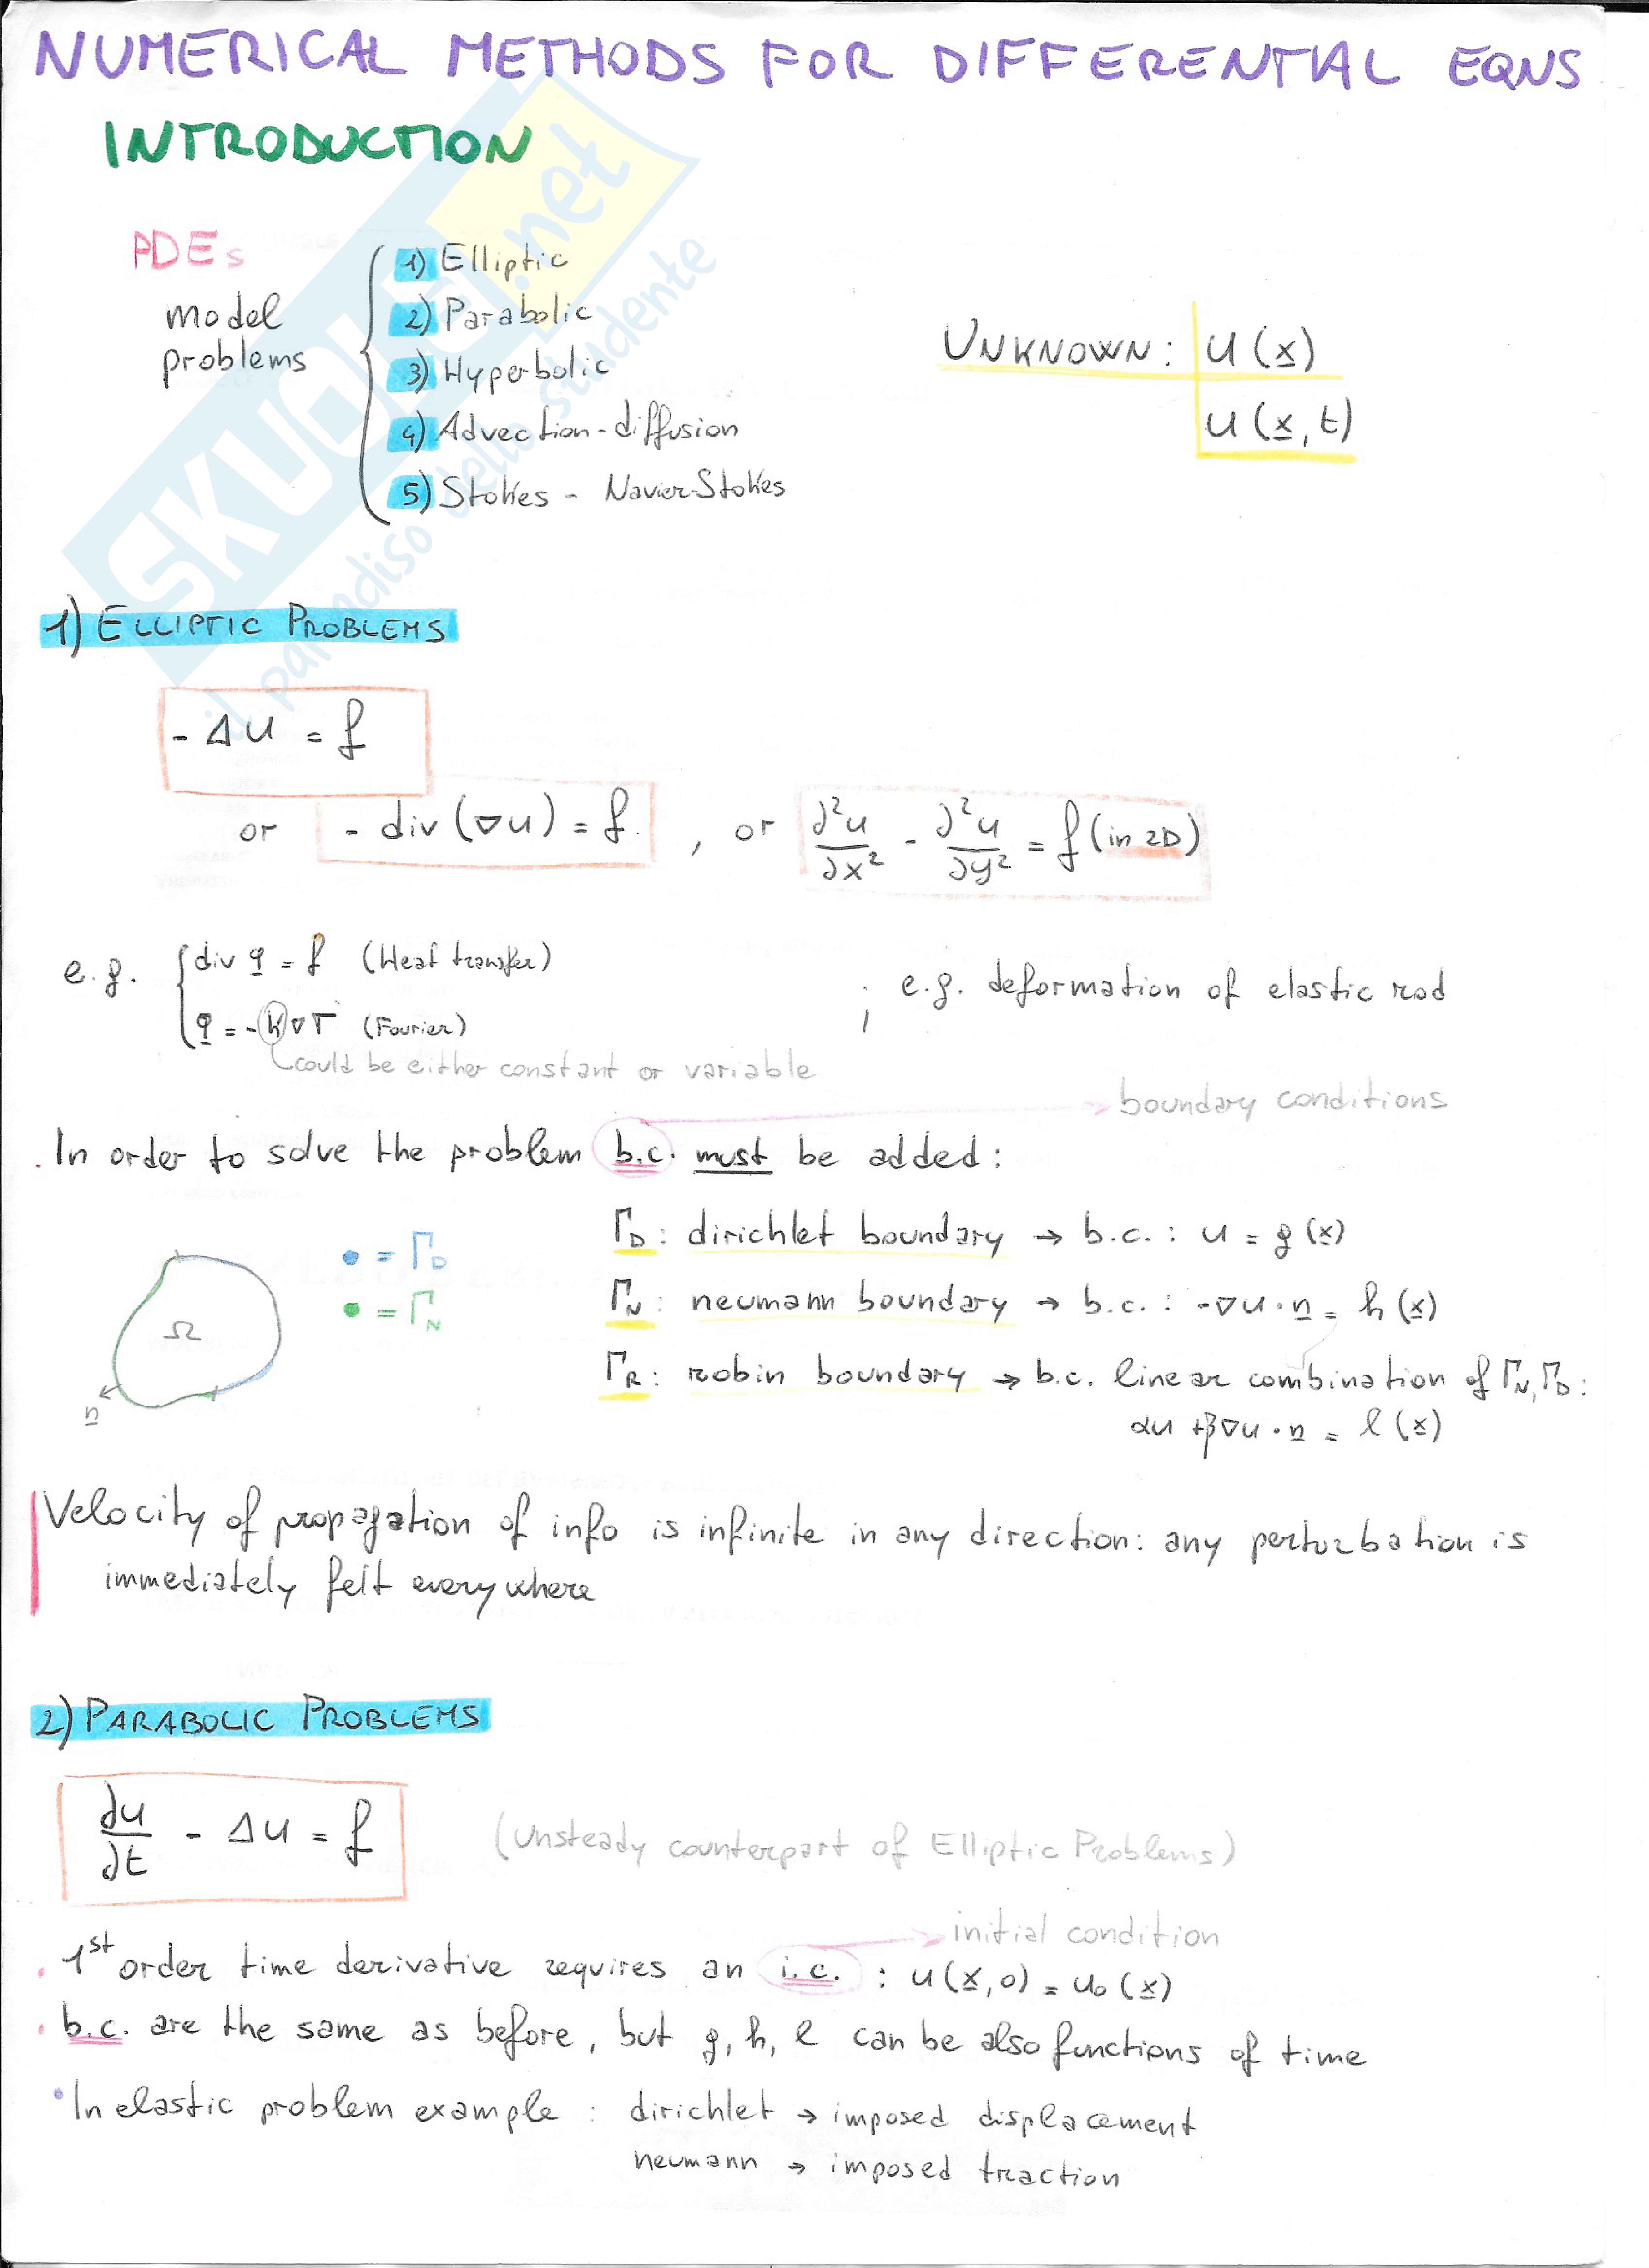 NUMERICAL METHODS FOR DIFFERENTIAL EQNS
INTRODUCTION
PDEs
model
problems
1) Elliptic
2) Parabolic
3) Hyperbolic
4) Advection-diffusion
5) Stokes - Navier-Stokes
UNKNOWN: u(x)
u(x, t)
SKUOLA.net
il paradiso dello studente
1) ELLIPTIC PROBLEMS
- Δu = f
or - div (∇u) = f , or ∂²u/∂x² - ∂²u/∂y² = f (in 2D)
e.g. { div q = f (Heat transfer) ; e.g. deformation of elastic rod
q = -k∇T (Fourier)
could be either constant or variable
boundary conditions
. In order to solve the problem b.c. must be added:
• = Γ_D
• = Γ_N
Ω
n
Γ_D: dirichlet boundary → b.c.: u = g(x)
Γ_N: neumann boundary → b.c.: -∇u · n = h(x)
Γ_R: robin boundary → b.c. linear combination of Γ_N, Γ_D:
αu + β∇u · n = l(x)
Velocity of propagation of info is infinite in any direction: any perturbation is
immediately felt everywhere
2) PARABOLIC PROBLEMS
∂u/∂t - Δu = f (Unsteady counterpart of Elliptic Problems)
initial condition
. 1st order time derivative requires an i.c. : u(x,0) = u₀(x)
. b.c. are the same as before, but g, h, l can be also functions of time
• In elastic problem example : dirichlet → imposed displacement
neumann → imposed traction